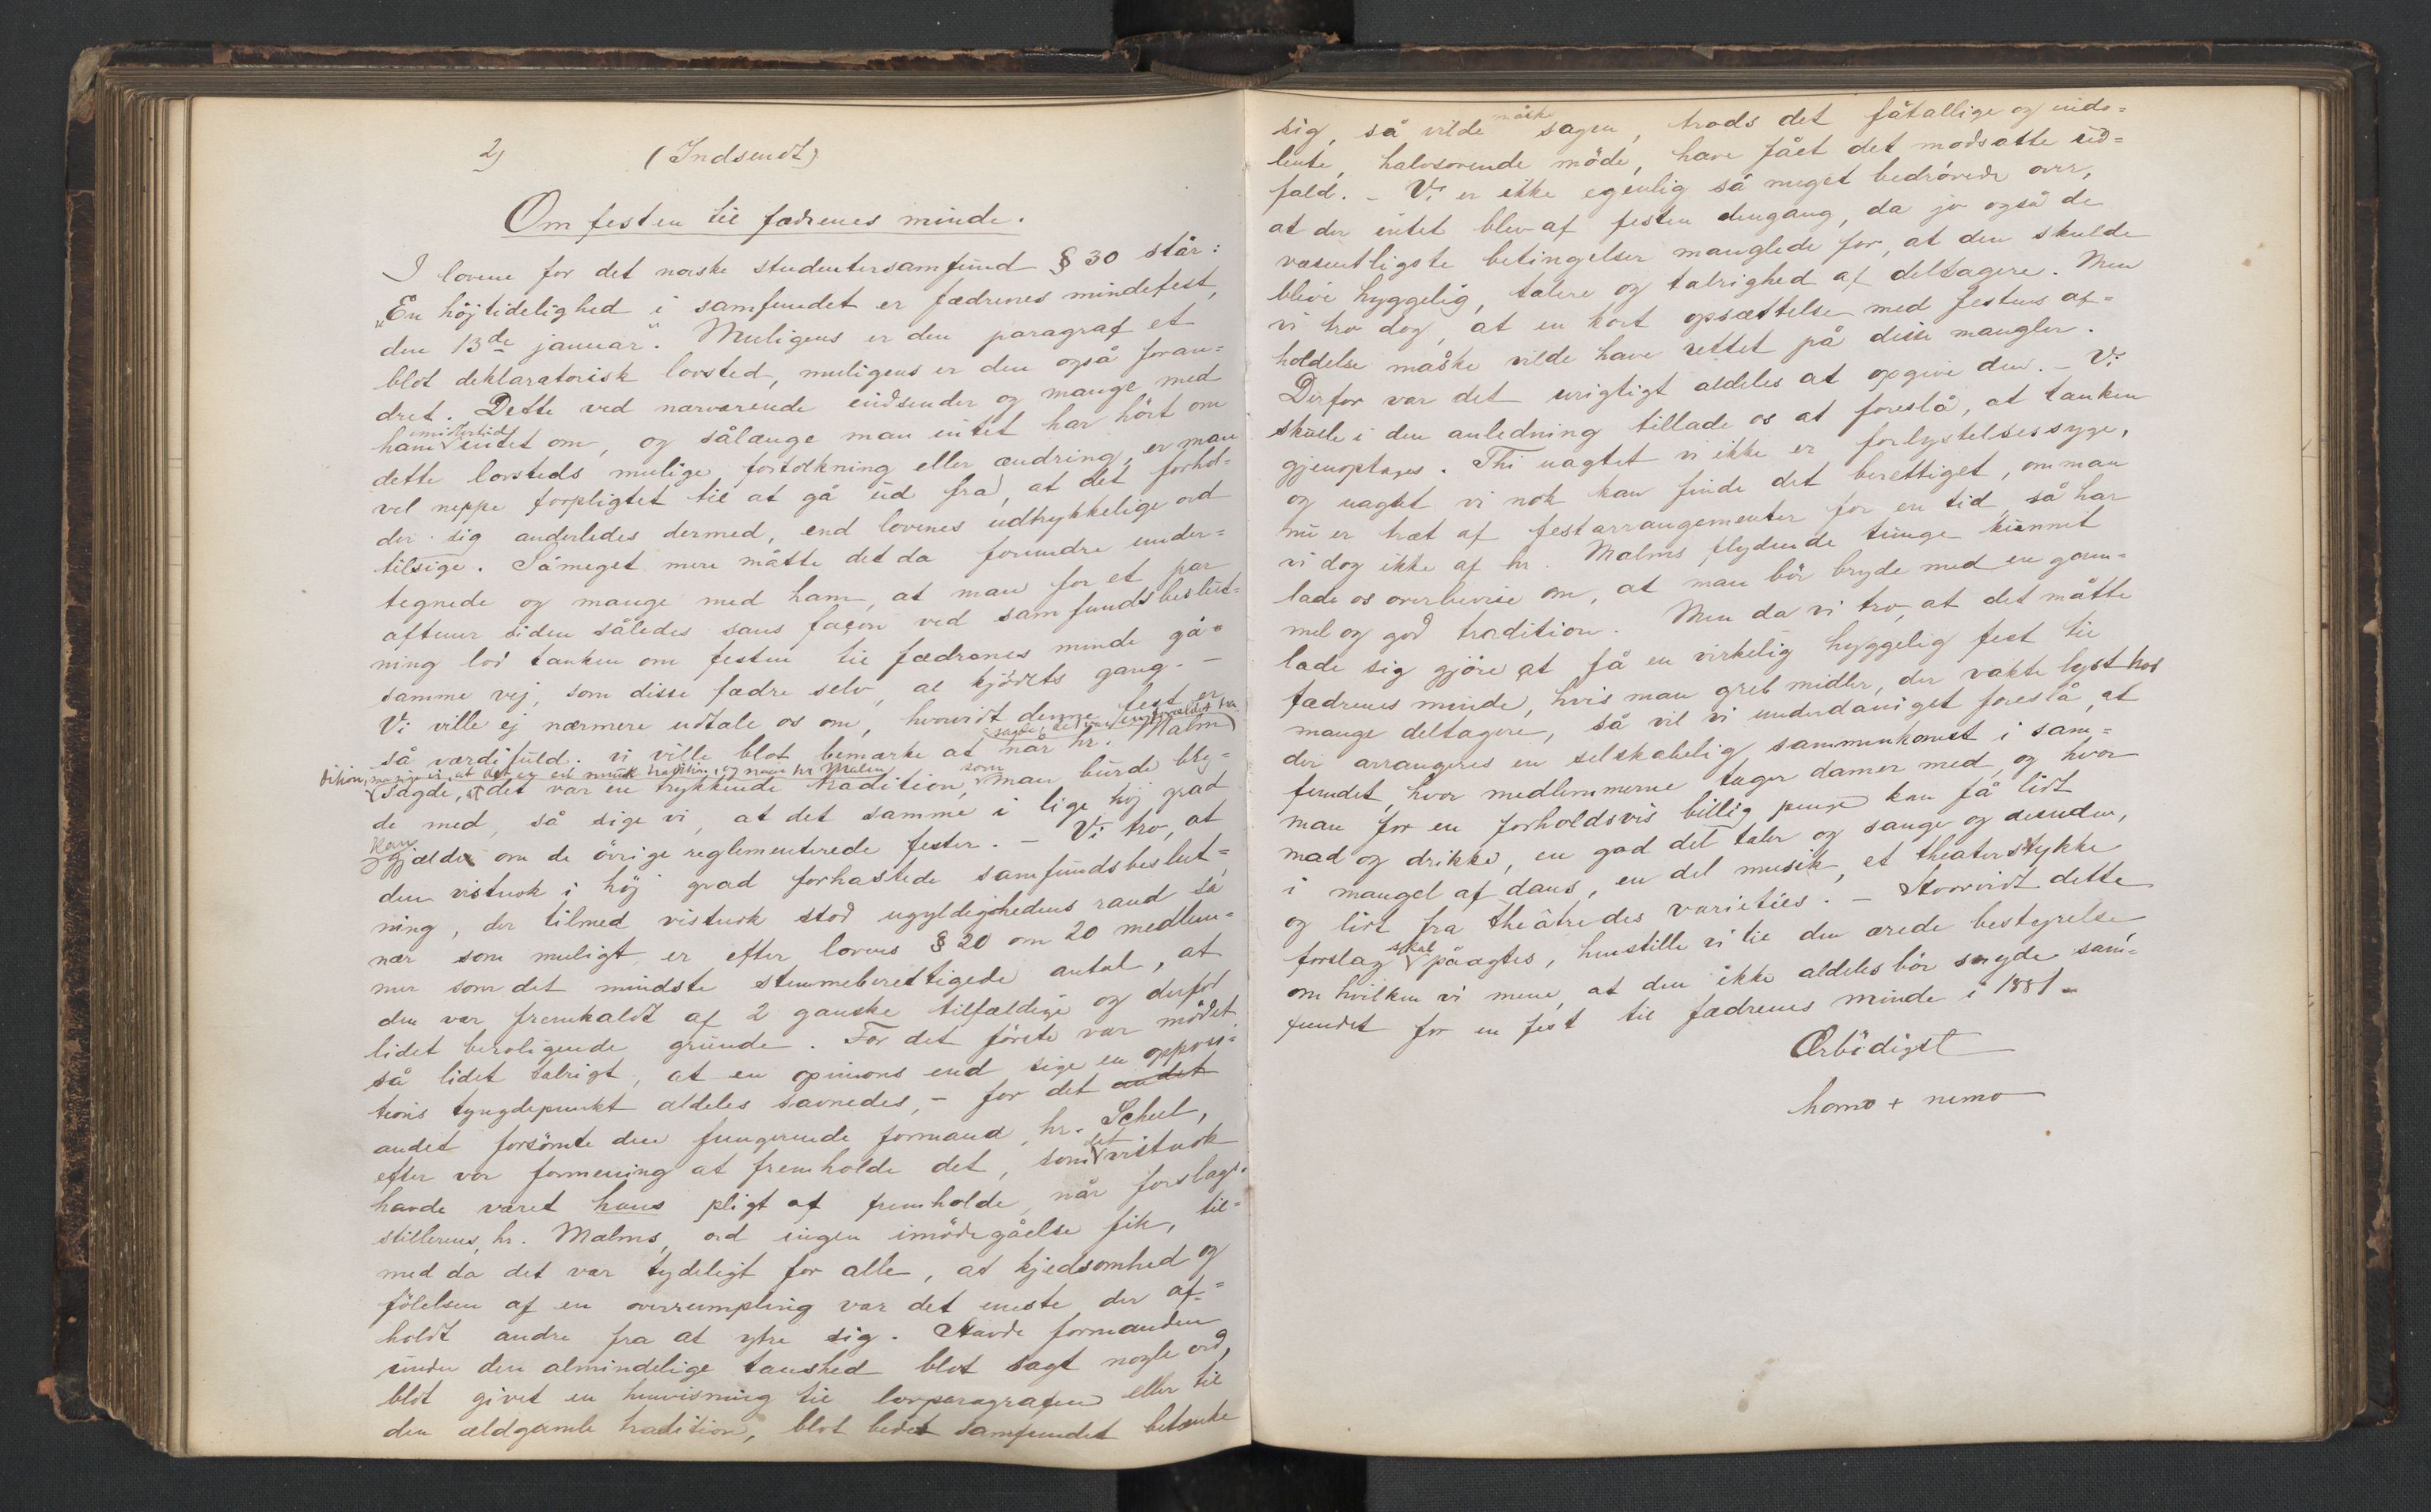 2)
(Indsendt)
Om festen til fædrenes minde.
I lovene for det norske studentersamfund § 30 står:
"En höjtidelighed i samfundet er fædrenes mindefest,
den 13de januar". Muligens er den paragraf et
blot deklaratorisk lovsted, muligens er den også foran=
dret. Dette ved nærværende indsender og mange med
ham imidlertid intet om, og sålænge man intet har hört om
dette lovsteds mulige fortolkning eller ændring, er man
vel neppe forpligtet til at gå ud fra, at det forhol=
der sig anderledes dermed, end lovenes udtrykkelige ord
tilsige. Såmeget mere måtte det da forundre under=
tegnede og mange med ham, at man for et par
aftener siden således sans façon ved samfundsbeslut=
ning lod tanken om festen til fædrenes minde gå
samme vej, som disse fædre selv, al kjödets gang. -
Vi ville ej nærmere udtale os om, hvorvidt denne fest er
så værdifuld. vi ville blot bemærke at når hr. Malm
sagde, at det var en trykkende tradition, som man burde bry=
de med, så sige vi, at det samme i lige höj grad
kan gjælde om de övrige reglementerede fester. - Vi tro, at
den vistnok i höj grad forhastede samfundsbeslut=
ning, der tilmed vistnok stod ugyldighedens rand så
nær som muligt er efter lovens § 20 om 20 medlem=
mer som det mindste stemmeberettigede antal, at
den var fremkaldt af 2 ganske tilfældige og derfor
lidet beroligende grunde. For det förste var mödet
så lidet talrigt, at en opinions end sige en opposi=
tions tyngdepunkt aldeles savnedes, - for det andet
andet forsömte den fungerende formand, hr. Scheel,
efter vor formening at fremholde det, som det vistnok
havde været hans pligt at fremholde, når forslags=
stillerens, hr. Malms, ord ingen imödegåelse fik, til=
med da det var tydeligt for alle, at kjedsomhed og
fölelsen af en overrumpling var det eneste der af=
holdt andre fra at ytre sig. Havde formanden
under den almindelige taushed blot sagt nogle ord,
blot givet en henvisning til lovparagrafen eller til
den ældgamle tradition, blot bedet samfundet betænke
sig, så vilde måske sagen, trods det fåtallige og indo=
lente, halvsovende möde, have fået det modsatte ud=
fald. - Vi er ikke egenlig så meget bedrövede over,
at der intet blev af festen dengang, da jo også de
væsentligste betingelser manglede for, at den skulde
blive hyggelig, talere og talrighed af deltagere. Men
vi tro dog, at en kort opsættelse med festens af=
holdelse måske vilde have rettet på disse mangler.
Derfor var det urigtigt aldeles at opgive den. - Vi
skulle i den anledning tillade os at foreslå, at tanken
gjenoptages. Thi uagtet vi ikke er forlystelsessyge,
og uagtet vi nok kan finde det berettiget, om man
nu er træt af festarrangementer for en tid, så har
vi dog ikke af hr. Malms flydende tunge kunnet
lade os overbevise om, at man bör bryde med en gam=
mel og god tradition. Men da vi tro, at det måtte
lade sig gjöre at få en virkelig hyggelig fest til
fædrenes minde, hvis man greb midler, der vakte lyst hos
mange deltagere, så vil vi underdanigst foreslå, at
der arrangeres en selskabelig sammenkomst i sam=
fundet, hvor medlemmerne tager damer med, og hvor
man for en forholdsvis billig penge kan få lidt
mad og drikke, en god del taler og sange og desuden,
i mangel af dans, en del musik, et theaterstykke
og lidt fra théâtre des varietées. - Hvorvidt dette
forslag skal påagtes, henstille vi til den ærede bestyrelse
om hvilken vi mene, at den ikke aldeles bör snyde sam=
fundet for en fest til fædrenes minde i 1881.
Ærbödigst
homo + nemo